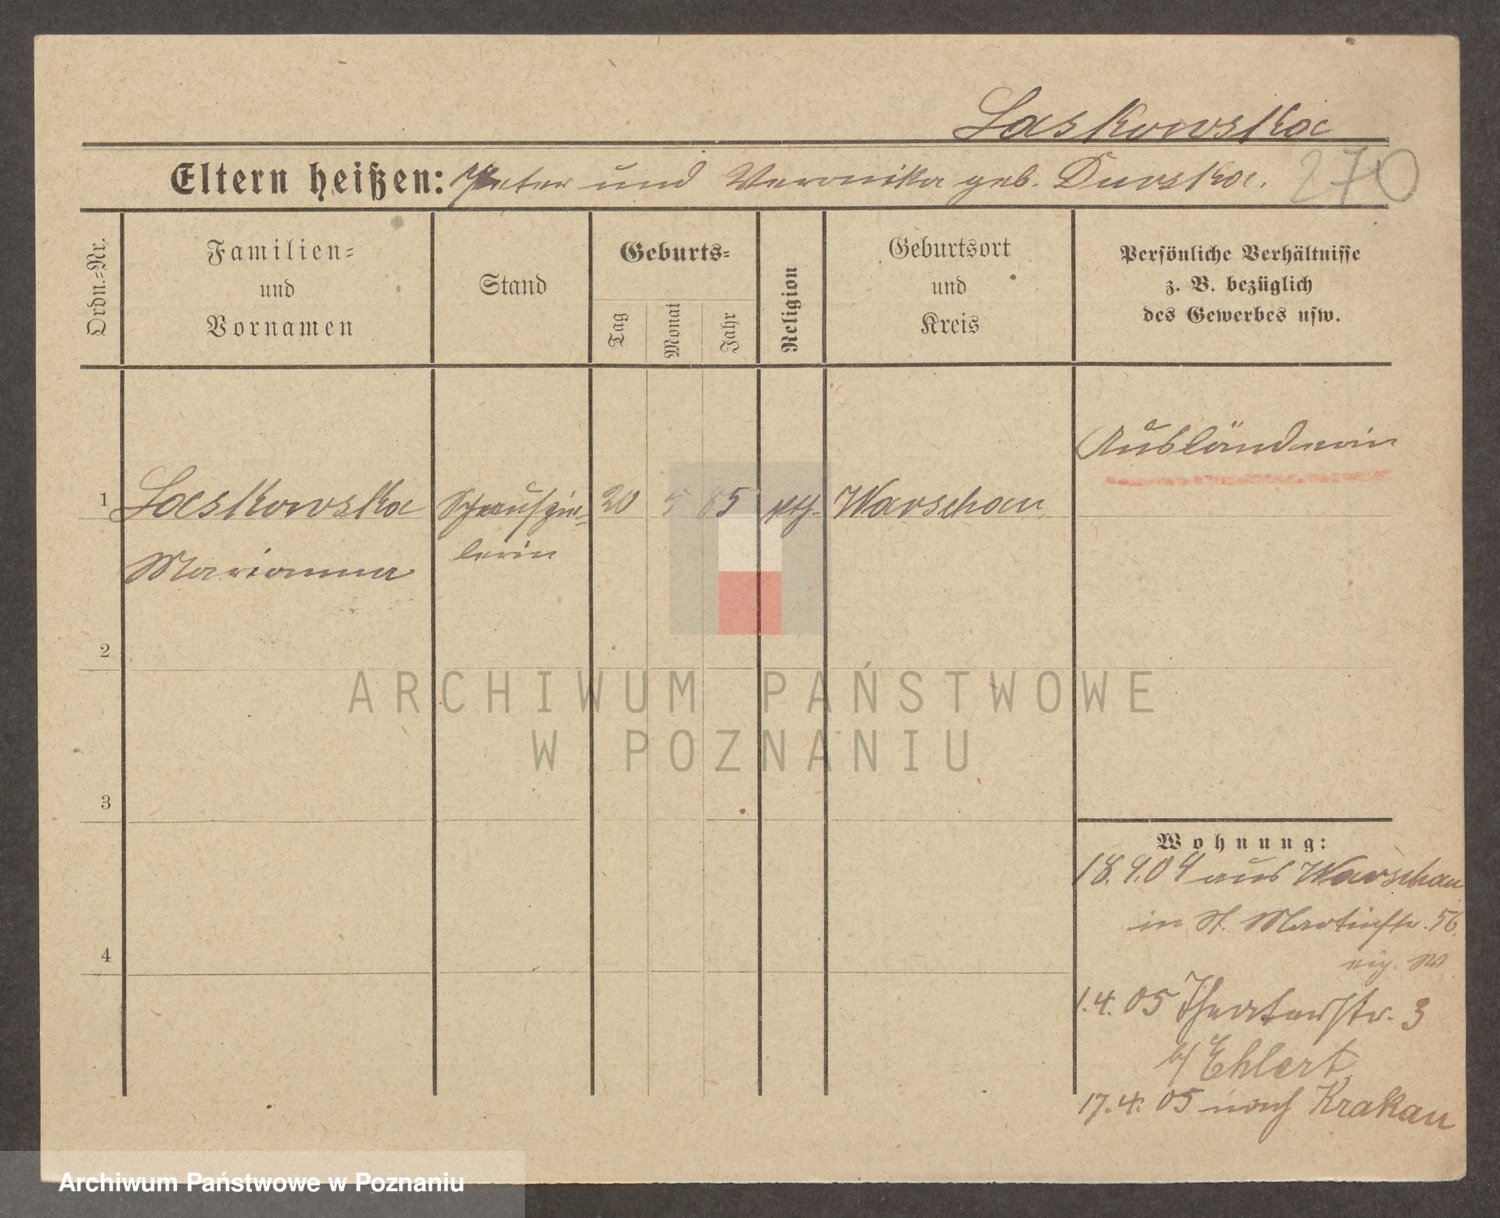 Laskowska
270
Eltern heißen: Peter und Veronika geb. Durska.
Ordn.=Nr.
Familien= und Vornamen
Stand
Geburts=
Tag
Monat
Jahr
Religion
Geburtsort und Kreis
Persönliche Verhältnisse
z. B. bezüglich
des Gewerbes usw.
Ausländerin
1 Laskowska Schauspie= 20 5 85 kth. Warschau
Marianna lerin
2
3
4
Wohnung:
18.9.04 aus Warschau
in St. Martinstr. 56
1.4.05 Theaterstr. 3
b/ Ehlert
17.4.05 nach Krakau
ARCHIWUM PAŃSTWOWE
W POZNANIU
Archiwum Państwowe w Poznaniu